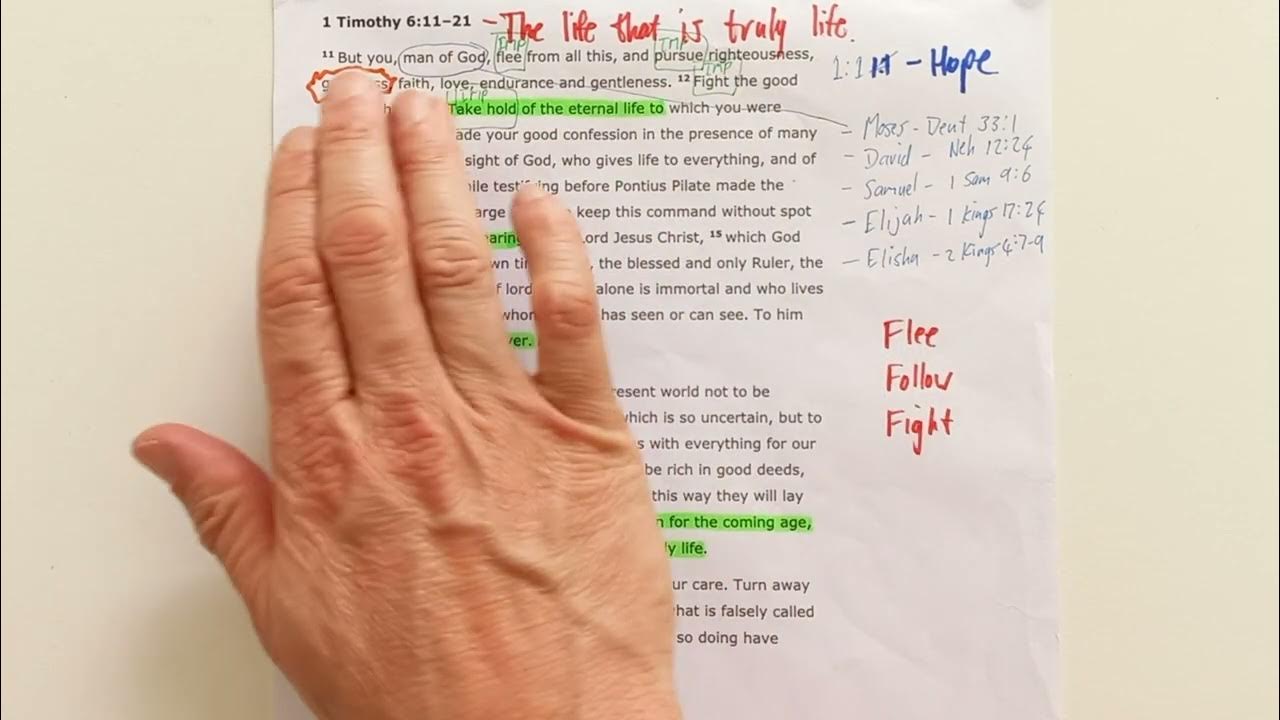 1 Timothy 6:11–21 – The life that is truly life.
IMP IMP
11 But you, man of God, flee from all this, and pursue righteousness,
1:1 – Hope
IMP
faith, love, endurance and gentleness. 12 Fight the good
IMP
Take hold of the eternal life to which you were
– Moses – Deut 33:1
ade your good confession in the presence of many
– David – Neh 12:24
sight of God, who gives life to everything, and of
– Samuel – 1 Sam 9:6
ile testifying before Pontius Pilate made the
arge keep this command without spot
– Elijah – 1 Kings 17:24
aring ord Jesus Christ, 15 which God
– Elisha – 2 Kings 4:7-9
wn ti , the blessed and only Ruler, the
f lord alone is immortal and who lives
whom has seen or can see. To him
ver.
Flee
Follow
Fight
resent world not to be
hich is so uncertain, but to
s with everything for our
be rich in good deeds,
this way they will lay
n for the coming age,
y life.
ur care. Turn away
hat is falsely called
so doing have